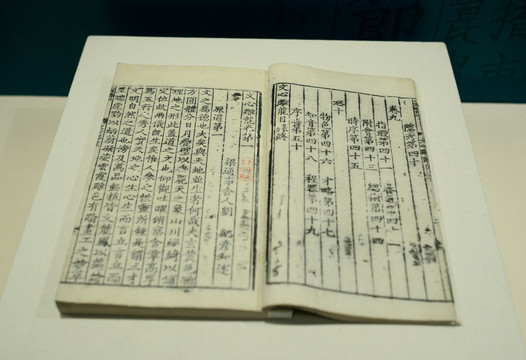 隱秀第四十
卷九
指瑕第四十一
附會第四十三 總術第四十四
時序第四十五
卷十
物色第四十六 才略第四十七
知音第四十八 程器第四十九
序志第五十
文心雕龍目錄終
文心雕龍卷第一
梁通事舍人劉勰彥和述
原道第一
文之為德也大矣與天地並生者何哉夫玄黃色雜
方圓體分日月疊璧以垂麗天之象山川煥綺以鋪
理地之形此蓋道之文也仰觀吐曜俯察含章高卑
定位故兩儀既生矣惟人參之性靈所鍾是謂三才
為五行之秀人實天地之心生心生而言立言立而
文明自然之道也傍及萬品動植皆文龍鳳以藻繪
呈瑞虎豹以炳蔚凝姿雲霞雕色有踰畫工之妙草